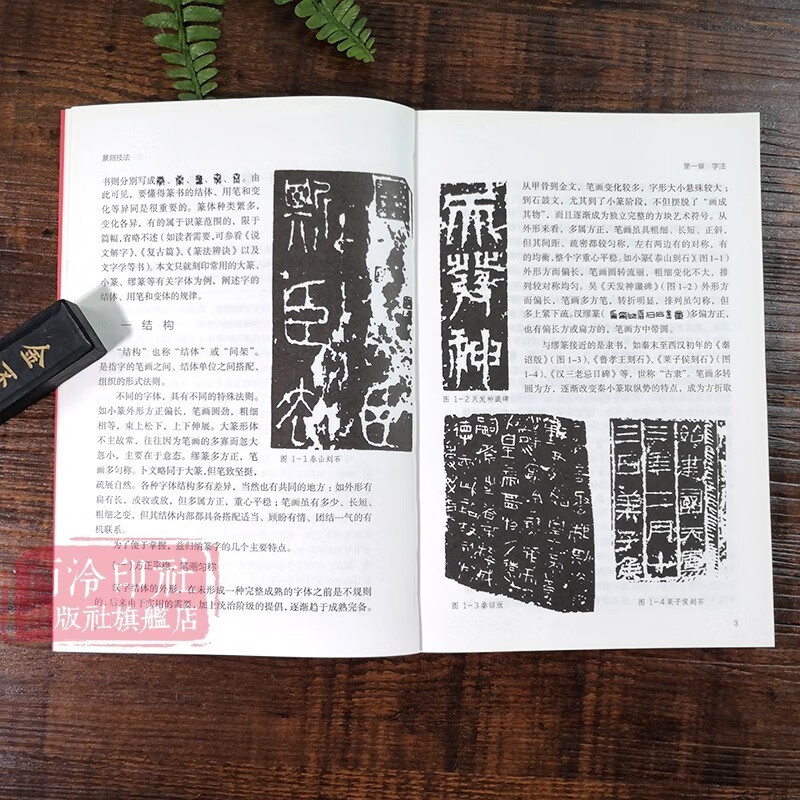 篆刻技法
书则分别写成
、
、
、
、
。由
此可见,要懂得篆书的结体、用笔和变
化等异同是很重要的。篆体种类繁多,
变化各异,有的属于识篆范围的,限于
篇幅,省略不述(如读者需要,可参看《说
文解字》、《复古篇》、《篆法辨诀》以及
文字学等书)。本文只就刻印常用的大篆、
小篆、缪篆等有关字体为例,阐述字的
结体、用笔和变体的规律。
一 结 构
“结构”也称“结体”或“间架”。
是指字的笔画之间、结体单位之间搭配、
组织的形式法则。
不同的字体,具有不同的特殊法则。
如小篆外形方正偏长,笔画圆劲,粗细
相等,束上松下,上下伸展。大篆形体
不主故常,往往因为笔画的多寡而忽大
忽小,主要在于意态。缪篆多方正,笔
画多匀称。卜文略同于大篆,但笔致坚挺,
疏展自然。各种字体结构多有差异,当然也有共同的地方:如外形有
扁有长,或收或放,但多属方正,重心平稳;笔画虽有多少、长短、
粗细之变,但其结体内部都具备搭配适当、顾盼有情、团结一气的有
机联系。
为了便于掌握,兹归纳篆字的几个主要特点。
(一)方正平稳,笔画匀称
汉字结体的外形,在未形成一种完整成熟的字体之前是不规则
的,后来由于实用的需要,加上统治阶级的提倡,逐渐趋于成熟完备。
斯臣
臣
图 1-1 泰山刻石
第一章 字法
从甲骨到金文,笔画变化较多,字形大小悬殊较大;
到石鼓文,尤其到了小篆阶段,不但摆脱了“画成
其物”,而且逐渐成为独立完整的方块艺术符号。从
外形来看,多属方正,笔画虽具粗细、长短、正斜,
但其间距、疏密都较匀称,左右两边有的对称,有
的均衡,整个字重心平稳。如小篆《泰山刻石》(图 1-1)
外形方而偏长,笔画圆转流丽,粗细变化不大,排
列较对称均匀。吴《天发神谶碑》(图 1-2)外形方
而偏长,笔画多方笔,转折明显,排列虽匀称,但
多上紧下疏。汉缪篆(
)多偏方正,
也有偏长方或扁方的,笔画方中带圆。
与缪篆接近的是隶书,如秦末至西汉初年的《秦
诏版》(图 1-3)、《鲁孝王刻石》、《莱子侯刻石》(图
1-4)、《汉三老忌日碑》等,世称“古隶”。笔画多转
圆为方、逐渐改变秦小篆取纵势的特点,成为方折取
图 1-2 天发神谶碑
图 1-3 秦诏版
始建国天凤
三年二月十
三日莱子侯
图 1-4 莱子侯刻石
3
金不
西泠印社
出版社旗艦店